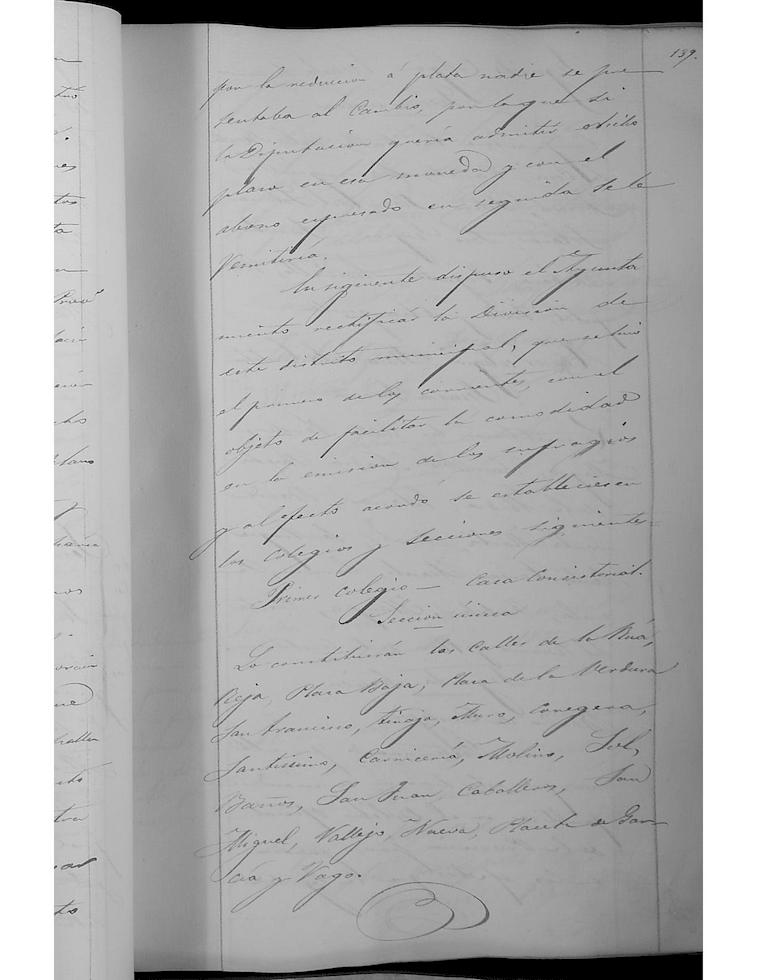 139.
por la reduccion á plata nadie se pre
sentaba al Cambio, por lo que si
la Diputacion queria admitir otrillo
plazo en esa moneda y con el
abono espresado en seguida se le
remitiria.
En siguiente dispuso el Ayunta
miento rectificar la Division de
este distrito municipal, que se hizo
el primero de los corrientes, con el
objeto de facilitar la comodidad
en la emision de los sufragios
y al efecto acordó se estableciesen
los colegios y secciones siguientes=
Primer colegio — Casa Consistorial.
Seccion única
Lo constituirán las Calles de la Rua,
Reja, Plaza Baja, Plaza de la Verdura
San Francisco, Tinaja, Muro, Corregera,
Santisimo, Carniceria, Molino, Sol,
Baños, San Juan, Caballeros, San
Miguel, Vallejo, Nueva, Placeta de Gar
cia y Vago.